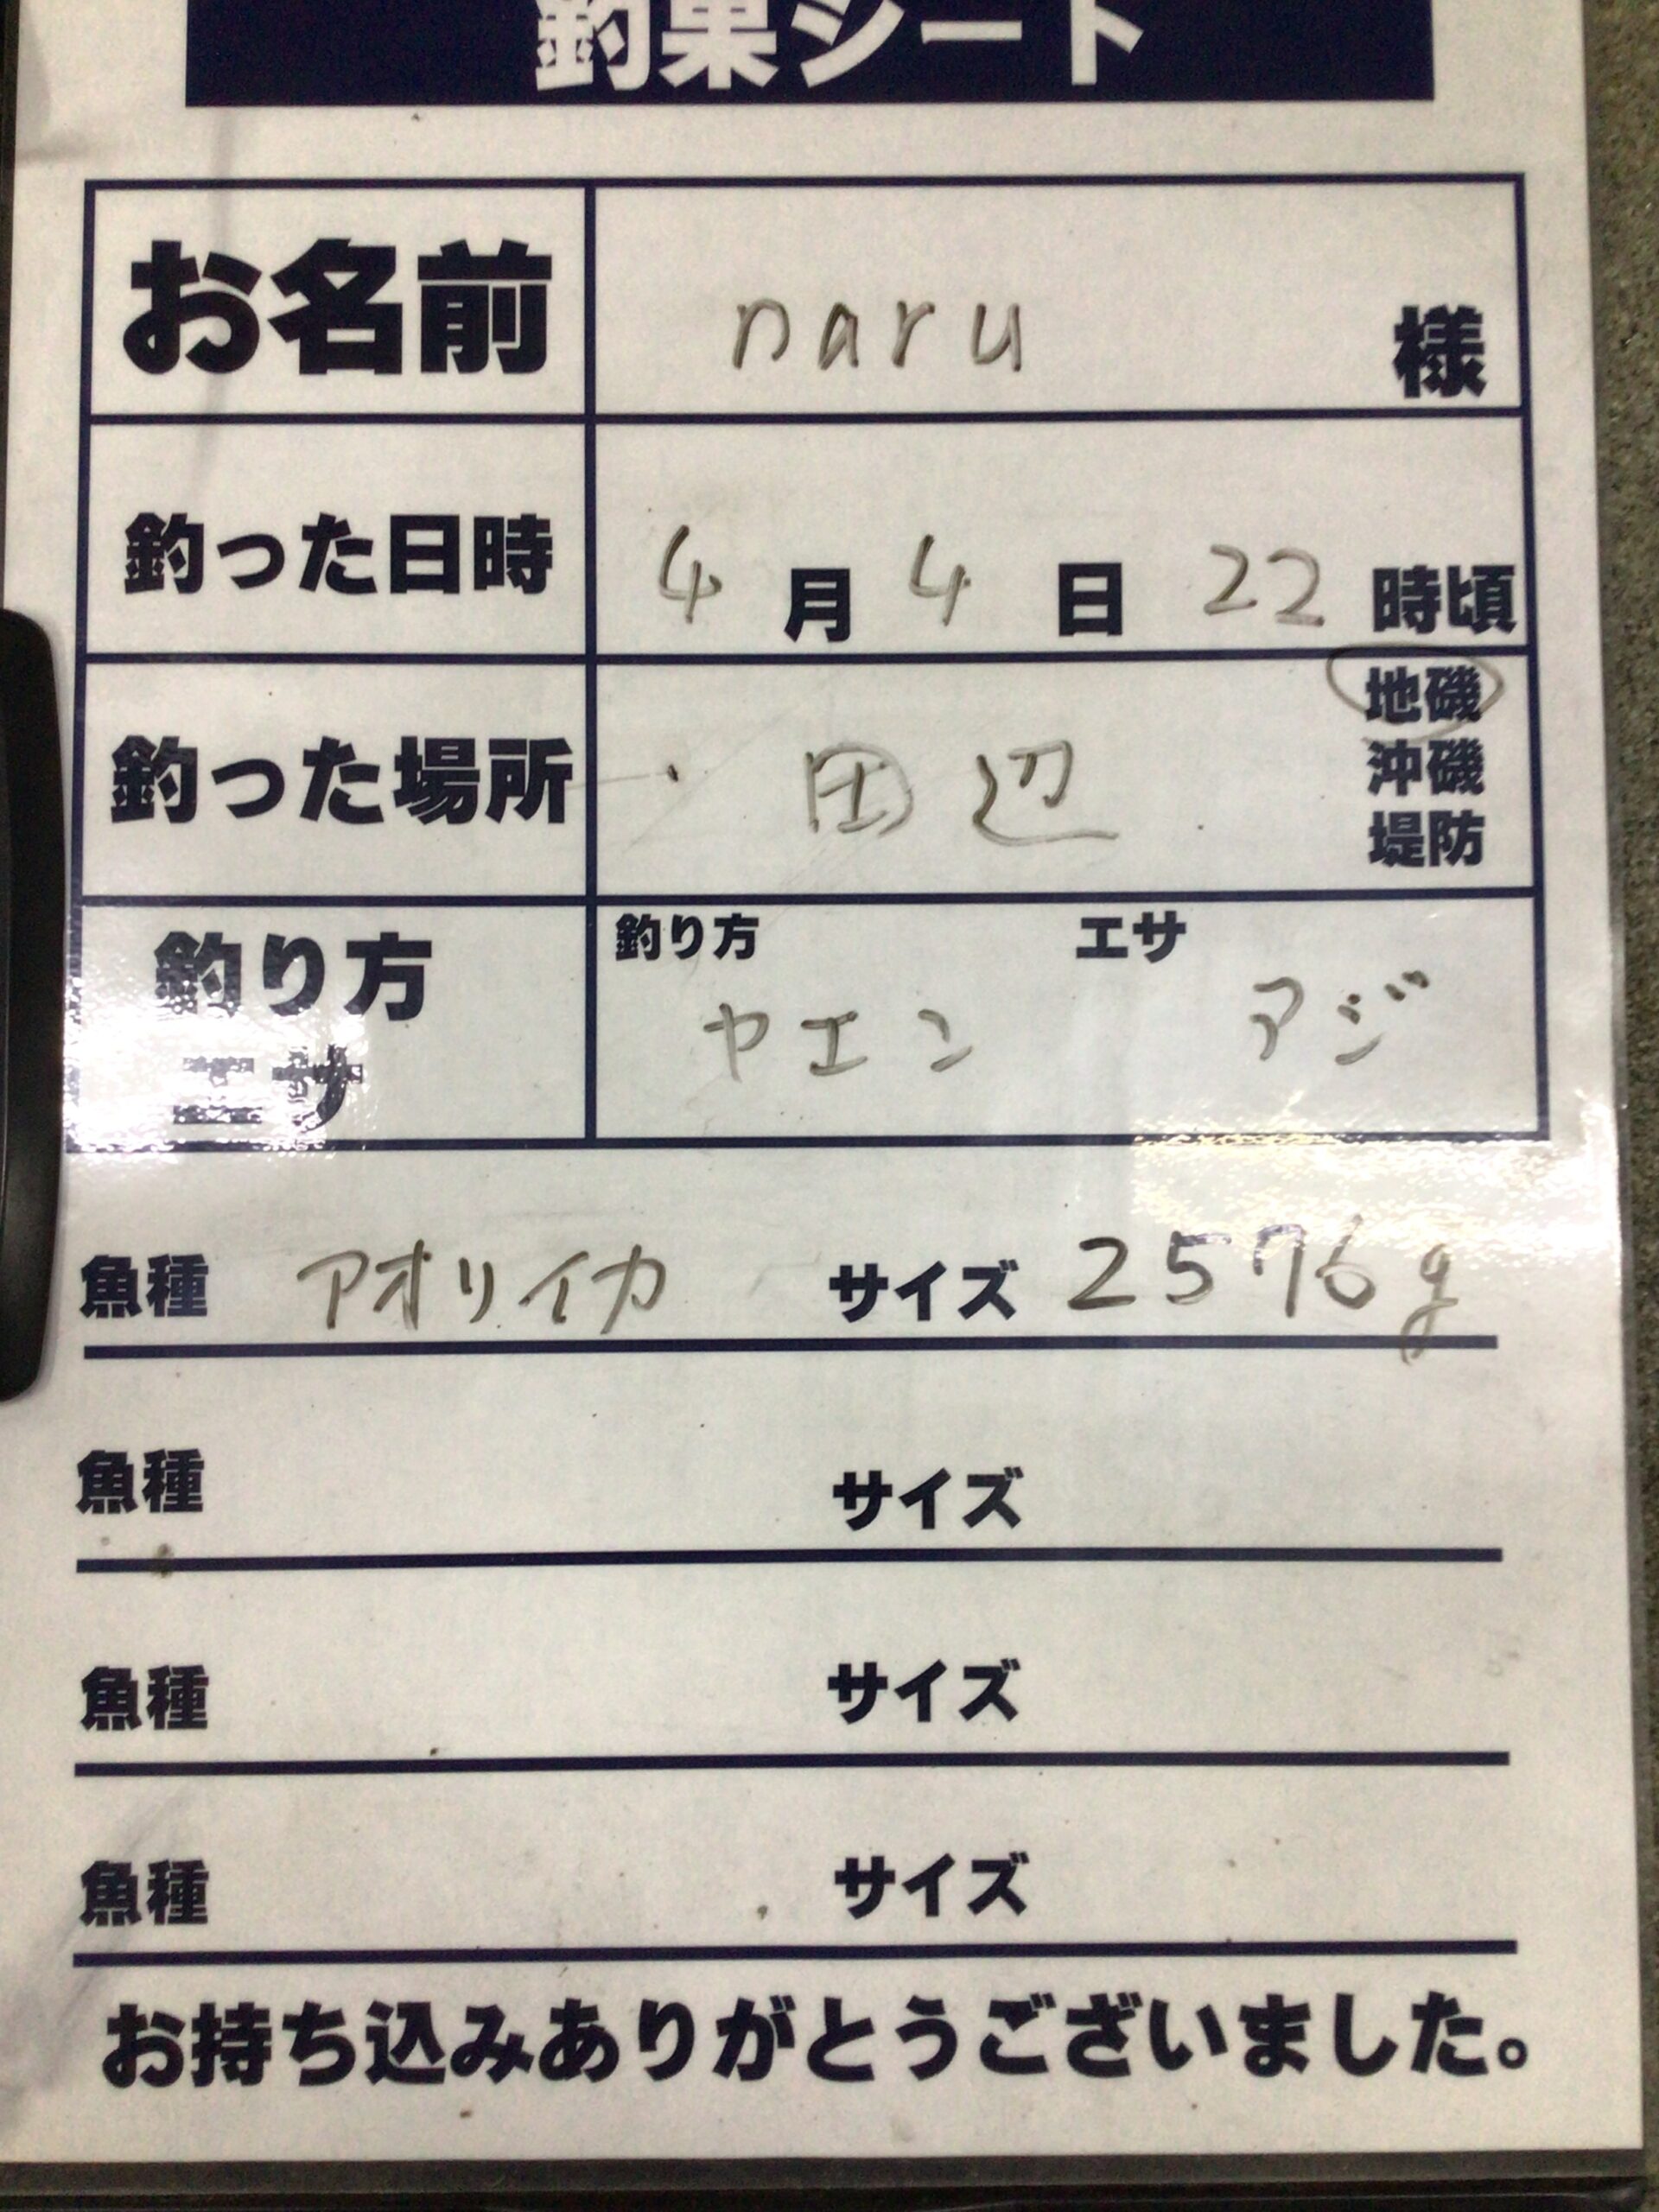 釣果シート
お名前 naru 様
釣った日時 4月4日22時頃
釣った場所 田辺 地磯
沖磯
堤防
釣り方 エサ
釣り方 エサ
ヤエン アジ
魚種 アオリイカ サイズ 2576g
魚種 サイズ
魚種 サイズ
魚種 サイズ
お持ち込みありがとうございました。